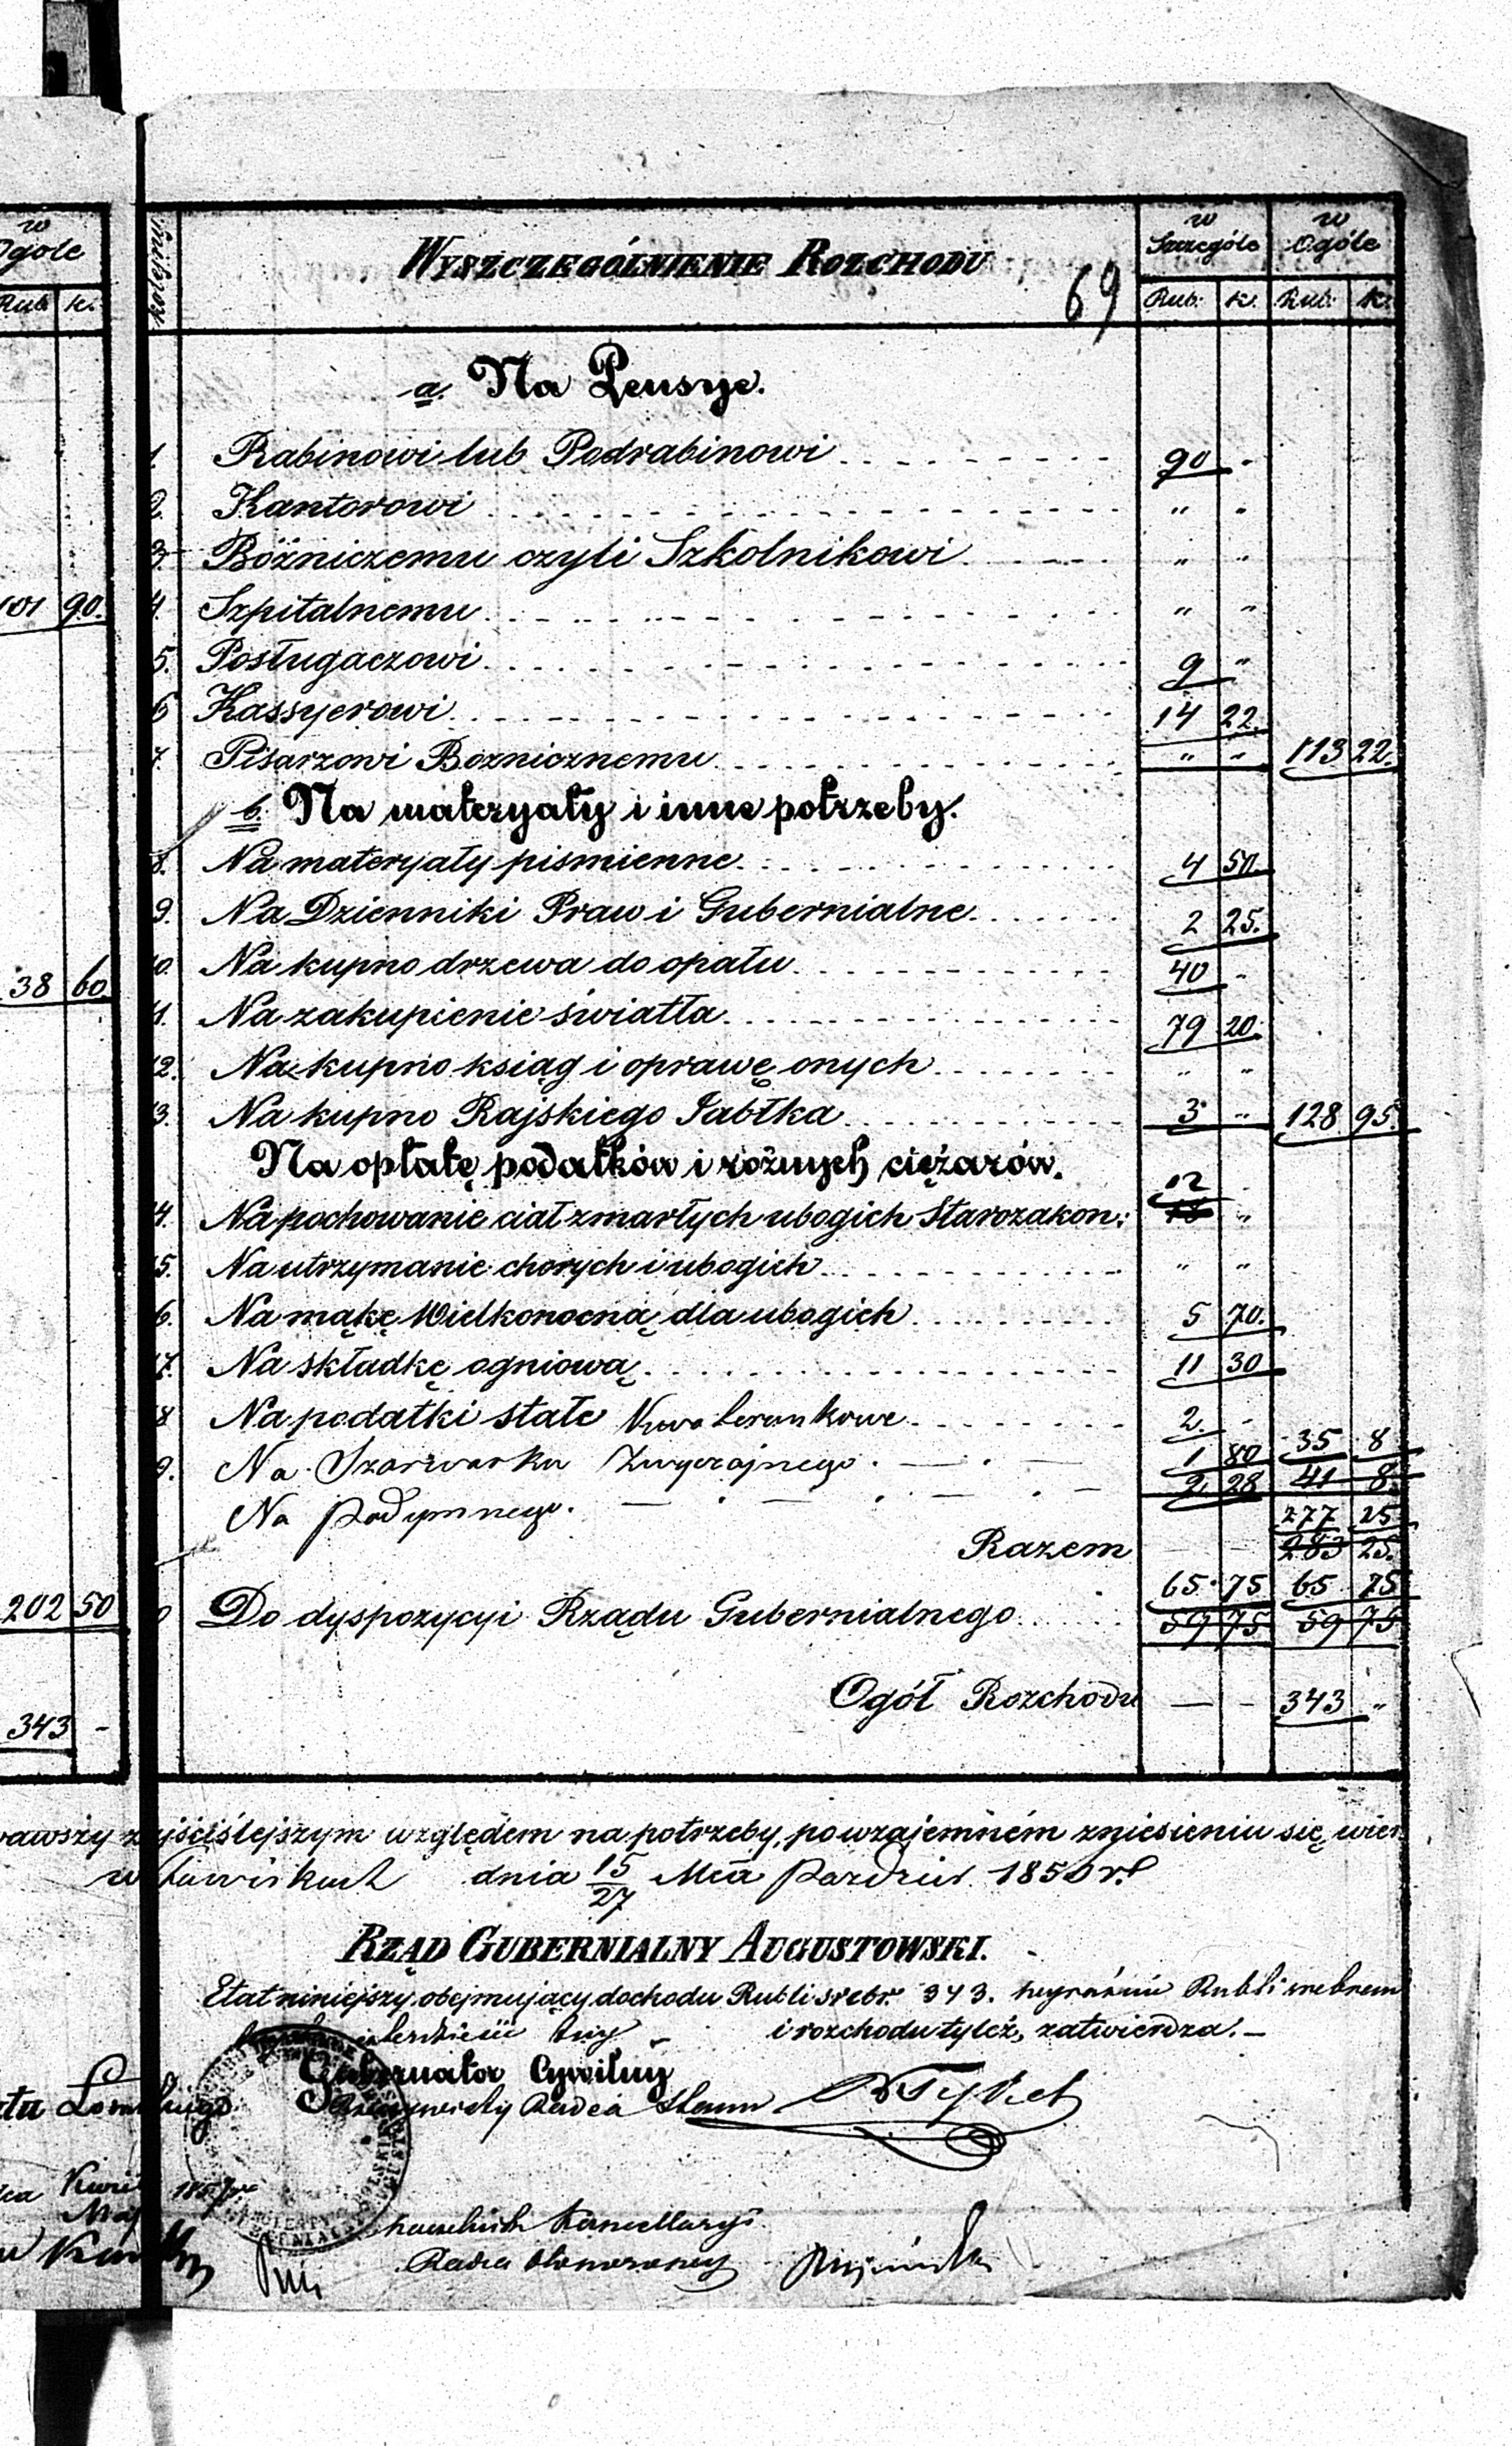 w Ogóle
Rub. k.
101 90.
38 60.
202 50
343 -
WYSZCZEGÓLNIENIE ROZCHODU
69
w Szczególe w Ogóle
Rub: k. Rub: k.
a. Na Pensye.
1. Rabinowi lub Podrabinowi 90 -
2. Kantorowi " "
3. Bóżniczemu czyli Szkolnikowi " "
4. Szpitalnemu " "
5. Posługaczowi 9 "
6 Kassyerowi 14 22.
7. Pisarzowi Boznicznemu " " 113 22.
b. Na materyały i inne potrzeby.
8. Na materyały piśmienne 4 50.
9. Na Dzienniki Praw i Gubernialne 2 25.
10. Na kupno drzewa do opału 40 -
11. Na zakupienie światła 79 20.
12. Na kupno ksiąg i oprawę onych " "
13. Na kupno Rajskiego Jabłka 3 " 128 95.
Na opłatę podatków i rożnych ciężarów.
12 -
14. Na pochowanie ciał zmarłych ubogich Starozakon: 18 "
15. Na utrzymanie chorych i ubogich " "
16. Na mąkę Wielkonocną dla ubogich 5 70.
17. Na składkę ogniową 11 30
18 Na podatki stałe 2. -
19. Na Szarwarku Zwyczajnego 1 80 35 8
Na Podymnego 2 28 41 8.
277 25
Razem 283 25.
65 75 65 75
Do dyspozycyi Rządu Gubernialnego 59 75 59 75
Ogół Rozchodu — - 343 "
najściślejszym względem na potrzeby, po wzajemném zniesieniu się, wier
w dnia 15/27 Mca Paździer. 1850 r.
RZĄD GUBERNIALNY AUGUSTOWSKI.
Etat niniejszy obejmujący dochodu Rubli srebr. 343. wyraźnie Rubli srebrem
trzysta czterdzieści trzy i rozchodu tyleż, zatwierdza. —
Gubernator Cywilny
Rzeczywisty Radca Stanu
Naczelnik Kancellaryi
Radca Honorowy